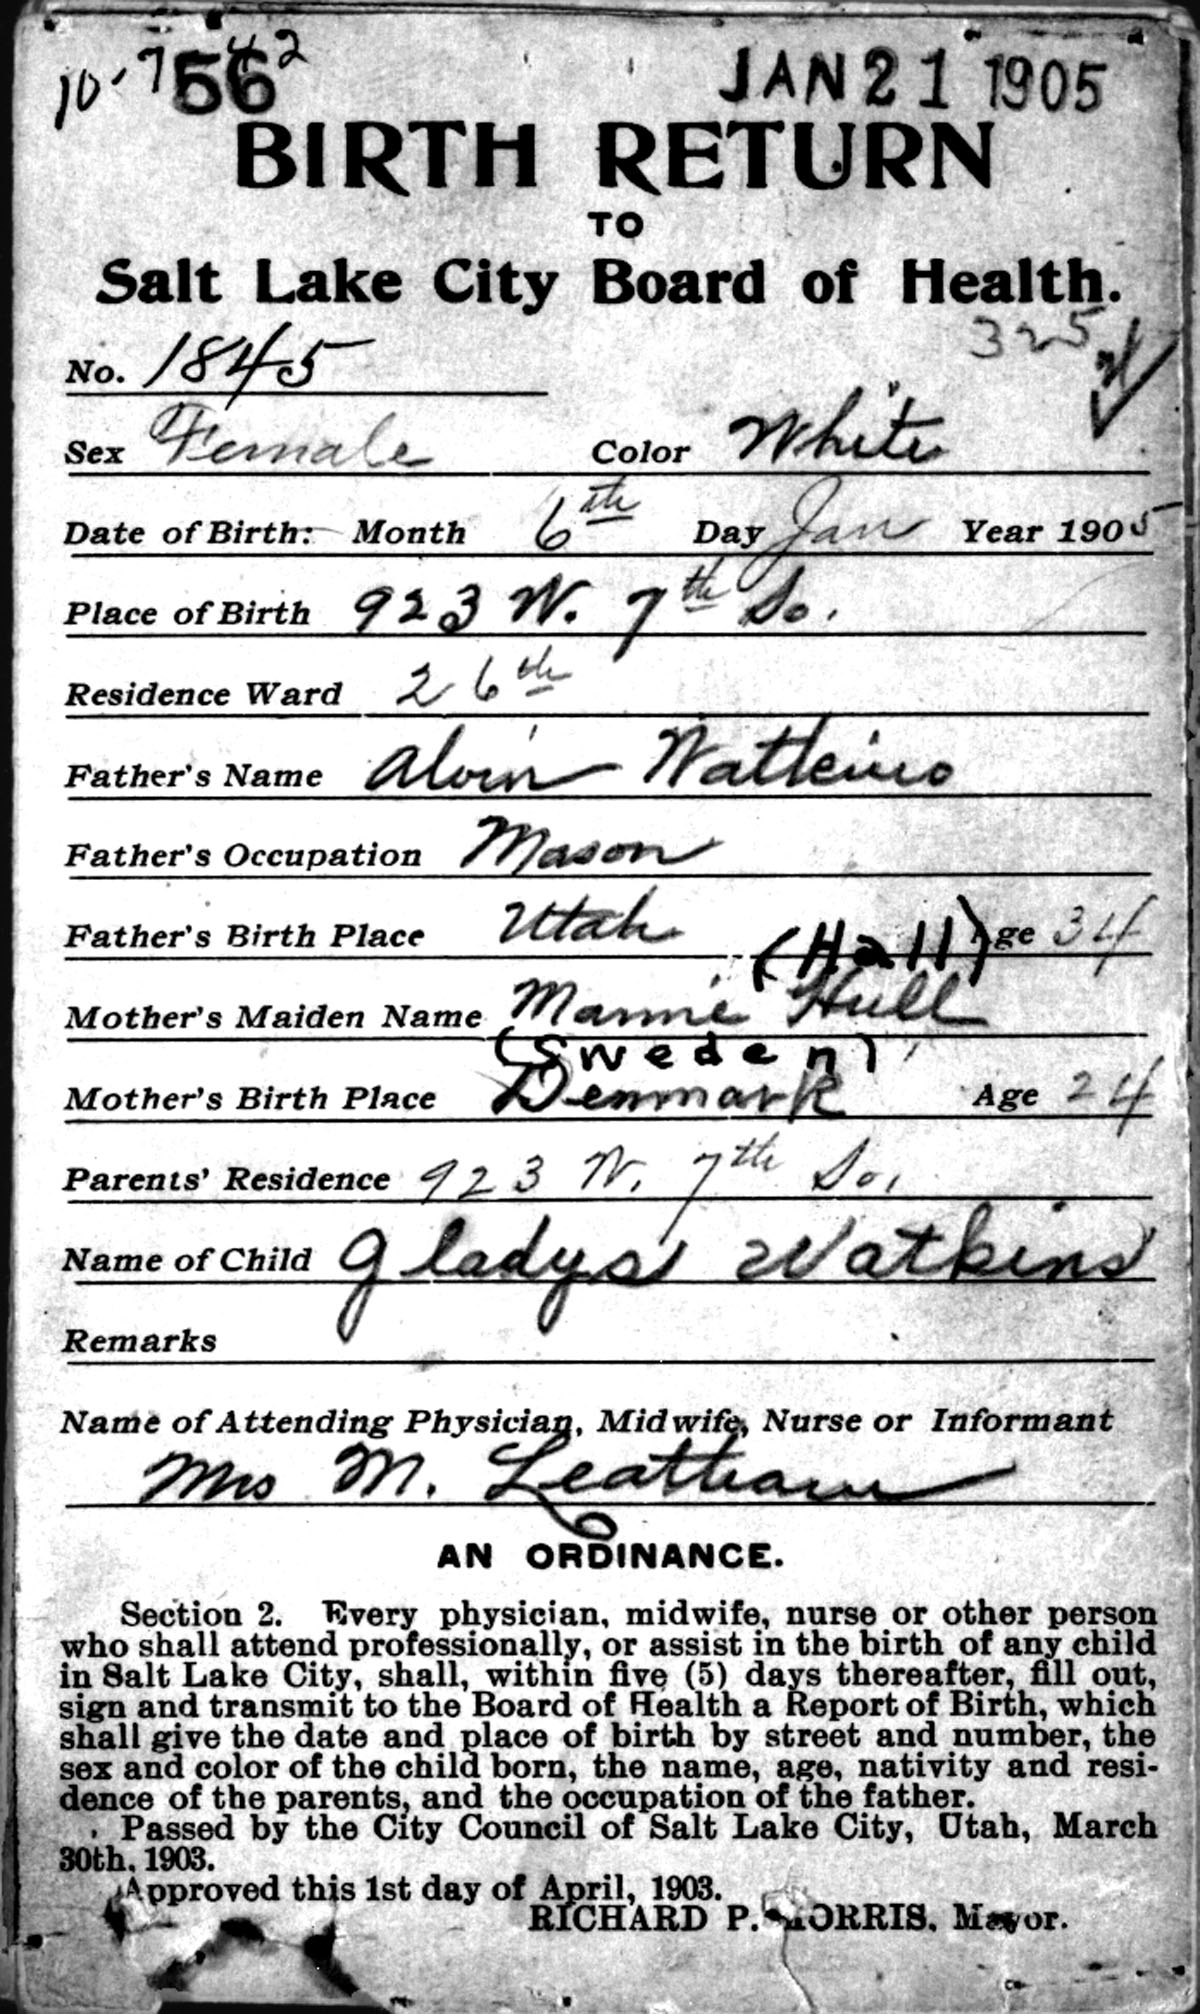 10-7 42
56 JAN 21 1905
BIRTH RETURN
TO
Salt Lake City Board of Health.
325
No. 1845
Sex Female Color White
Date of Birth: Month 6th Day Jan Year 1905
Place of Birth 923 W. 7th So.
Residence Ward 26th
Father's Name Alvin Watkins
Father's Occupation Mason
Father's Birth Place Utah Age 34
(Hall)
Mother's Maiden Name Mamie Hull
(Sweden)
Mother's Birth Place Denmark Age 24
Parents' Residence 923 W. 7th So.
Name of Child Gladys Watkins
Remarks
Name of Attending Physician, Midwife, Nurse or Informant
Mrs M. Leatham
AN ORDINANCE.
Section 2. Every physician, midwife, nurse or other person
who shall attend professionally, or assist in the birth of any child
in Salt Lake City, shall, within five (5) days thereafter, fill out,
sign and transmit to the Board of Health a Report of Birth, which
shall give the date and place of birth by street and number, the
sex and color of the child born, the name, age, nativity and resi-
dence of the parents, and the occupation of the father.
Passed by the City Council of Salt Lake City, Utah, March
30th, 1903.
Approved this 1st day of April, 1903.
RICHARD P. MORRIS, Mayor.